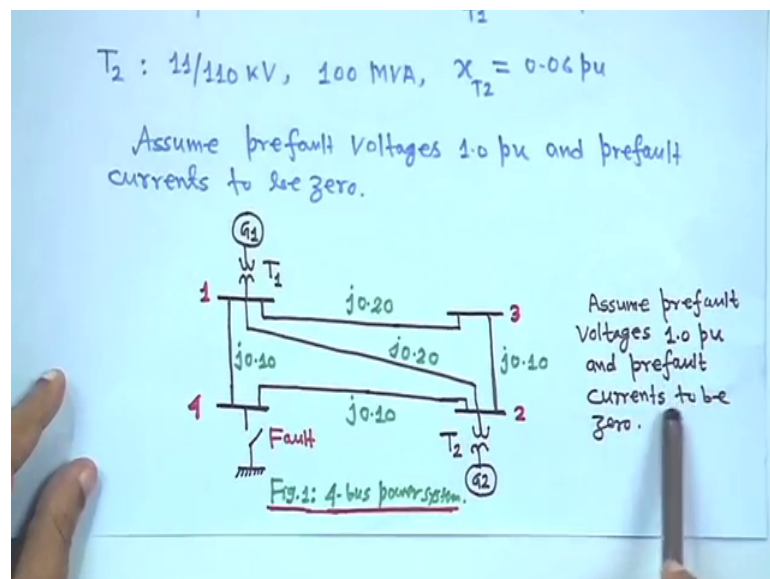 T1
T2 : 11/110 KV, 100 MVA, xT2 = 0.06 pu
Assume prefault voltages 1.0 pu and prefault
currents to be zero.
G1
T1
1
j0.20
3
j0.10
j0.20
j0.10
4
j0.10
2
Fault
T2
G2
Fig.1: 4-bus power system.
Assume prefault
voltages 1.0 pu
and prefault
currents to be
zero.